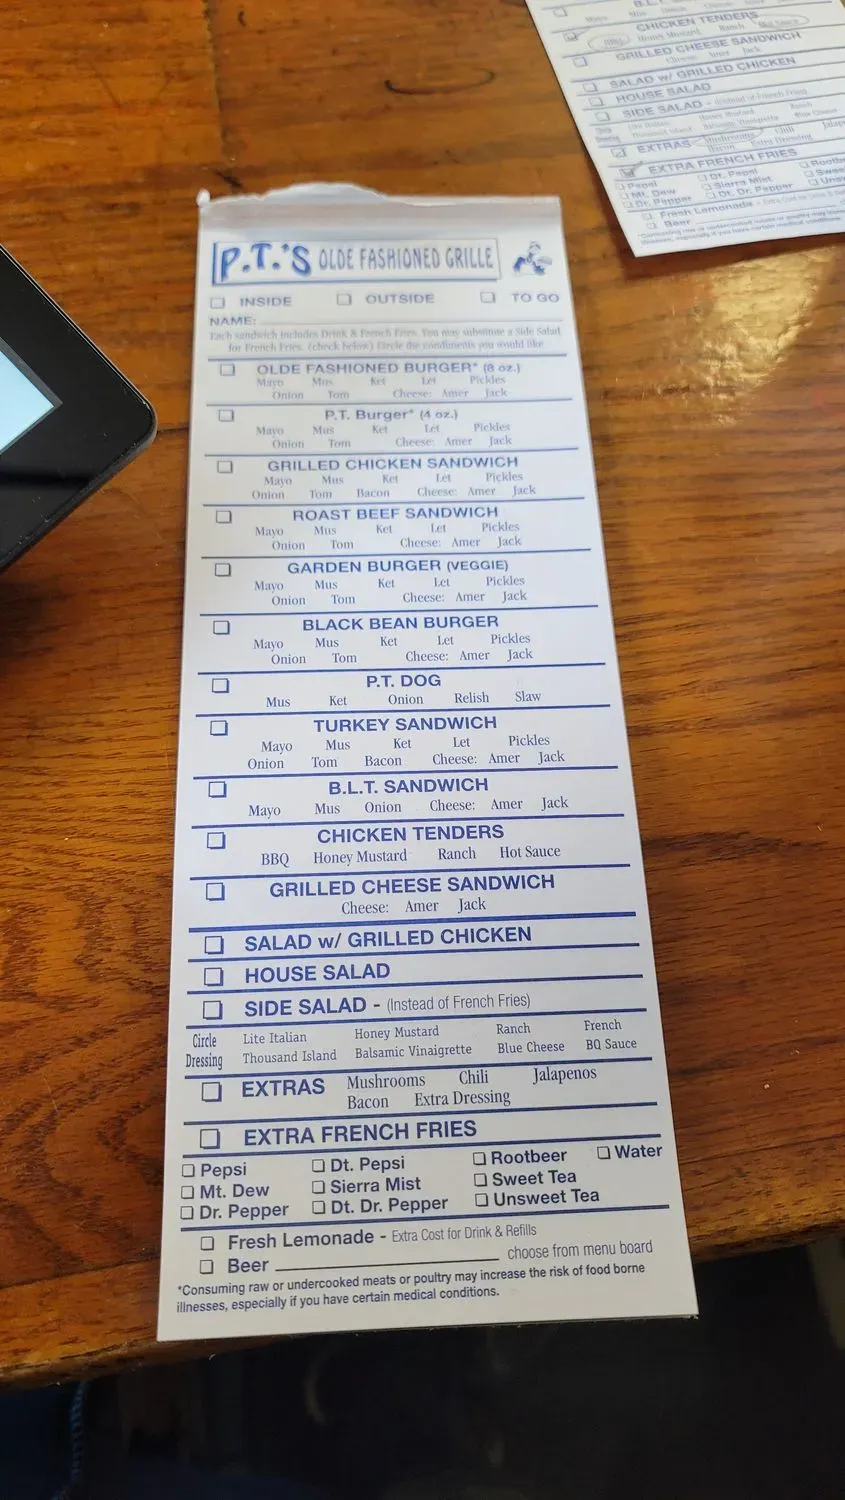 CHICKEN TENDERS
BBQ Honey Mustard Ranch Hot Sauce
GRILLED CHEESE SANDWICH
Cheese: Amer Jack
SALAD w/ GRILLED CHICKEN
HOUSE SALAD
SIDE SALAD - (Instead of French Fries)
Honey Mustard Ranch
Thousand Island Balsamic Vinaigrette Blue Cheese
EXTRAS Mushrooms Chili
Bacon Extra Dressing
EXTRA FRENCH FRIES
Pepsi Dt. Pepsi
Mt. Dew Sierra Mist
Dr. Pepper Dt. Dr. Pepper
Fresh Lemonade -
Beer
P.T.'S OLDE FASHIONED GRILLE
INSIDE OUTSIDE TO GO
NAME:
Each sandwich includes Drink & French Fries. You may substitute a Side Salad
for French Fries. (check below) Circle the condiments you would like
OLDE FASHIONED BURGER* (8 oz.)
Mayo Mus Ket Let Pickles
Onion Tom Cheese: Amer Jack
P.T. Burger* (4 oz.)
Mayo Mus Ket Let Pickles
Onion Tom Cheese: Amer Jack
GRILLED CHICKEN SANDWICH
Mayo Mus Ket Let Pickles
Onion Tom Bacon Cheese: Amer Jack
ROAST BEEF SANDWICH
Mayo Mus Ket Let Pickles
Onion Tom Cheese: Amer Jack
GARDEN BURGER (VEGGIE)
Mayo Mus Ket Let Pickles
Onion Tom Cheese: Amer Jack
BLACK BEAN BURGER
Mayo Mus Ket Let Pickles
Onion Tom Cheese: Amer Jack
P.T. DOG
Mus Ket Onion Relish Slaw
TURKEY SANDWICH
Mayo Mus Ket Let Pickles
Onion Tom Bacon Cheese: Amer Jack
B.L.T. SANDWICH
Mayo Mus Onion Cheese: Amer Jack
CHICKEN TENDERS
BBQ Honey Mustard Ranch Hot Sauce
GRILLED CHEESE SANDWICH
Cheese: Amer Jack
SALAD w/ GRILLED CHICKEN
HOUSE SALAD
SIDE SALAD - (Instead of French Fries)
Circle Lite Italian Honey Mustard Ranch French
Dressing Thousand Island Balsamic Vinaigrette Blue Cheese BQ Sauce
EXTRAS Mushrooms Chili Jalapenos
Bacon Extra Dressing
EXTRA FRENCH FRIES
Pepsi Dt. Pepsi Rootbeer Water
Mt. Dew Sierra Mist Sweet Tea
Dr. Pepper Dt. Dr. Pepper Unsweet Tea
Fresh Lemonade - Extra Cost for Drink & Refills
Beer choose from menu board
*Consuming raw or undercooked meats or poultry may increase the risk of food borne
illnesses, especially if you have certain medical conditions.